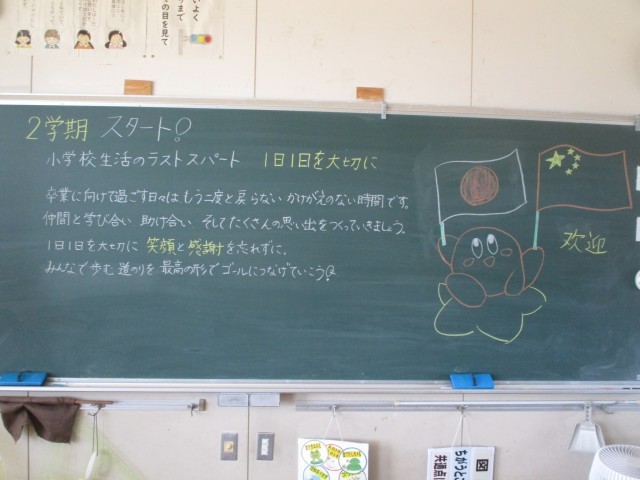 いよく
りまて
の目を見て
2学期 スタート!
小学校生活のラストスパート 1日1日を大切に
卒業に向けて過ごす日々は もう二度と戻らない かけがえのない時間です。
仲間と学び合い 助け合い そしてたくさんの思い出をつくっていきましょう。
1日1日を大切に 笑顔と感謝を忘れずに。
みんなで歩む道のりを 最高の形でゴールにつなげていこう!
欢迎
図
ちがうと
共通点